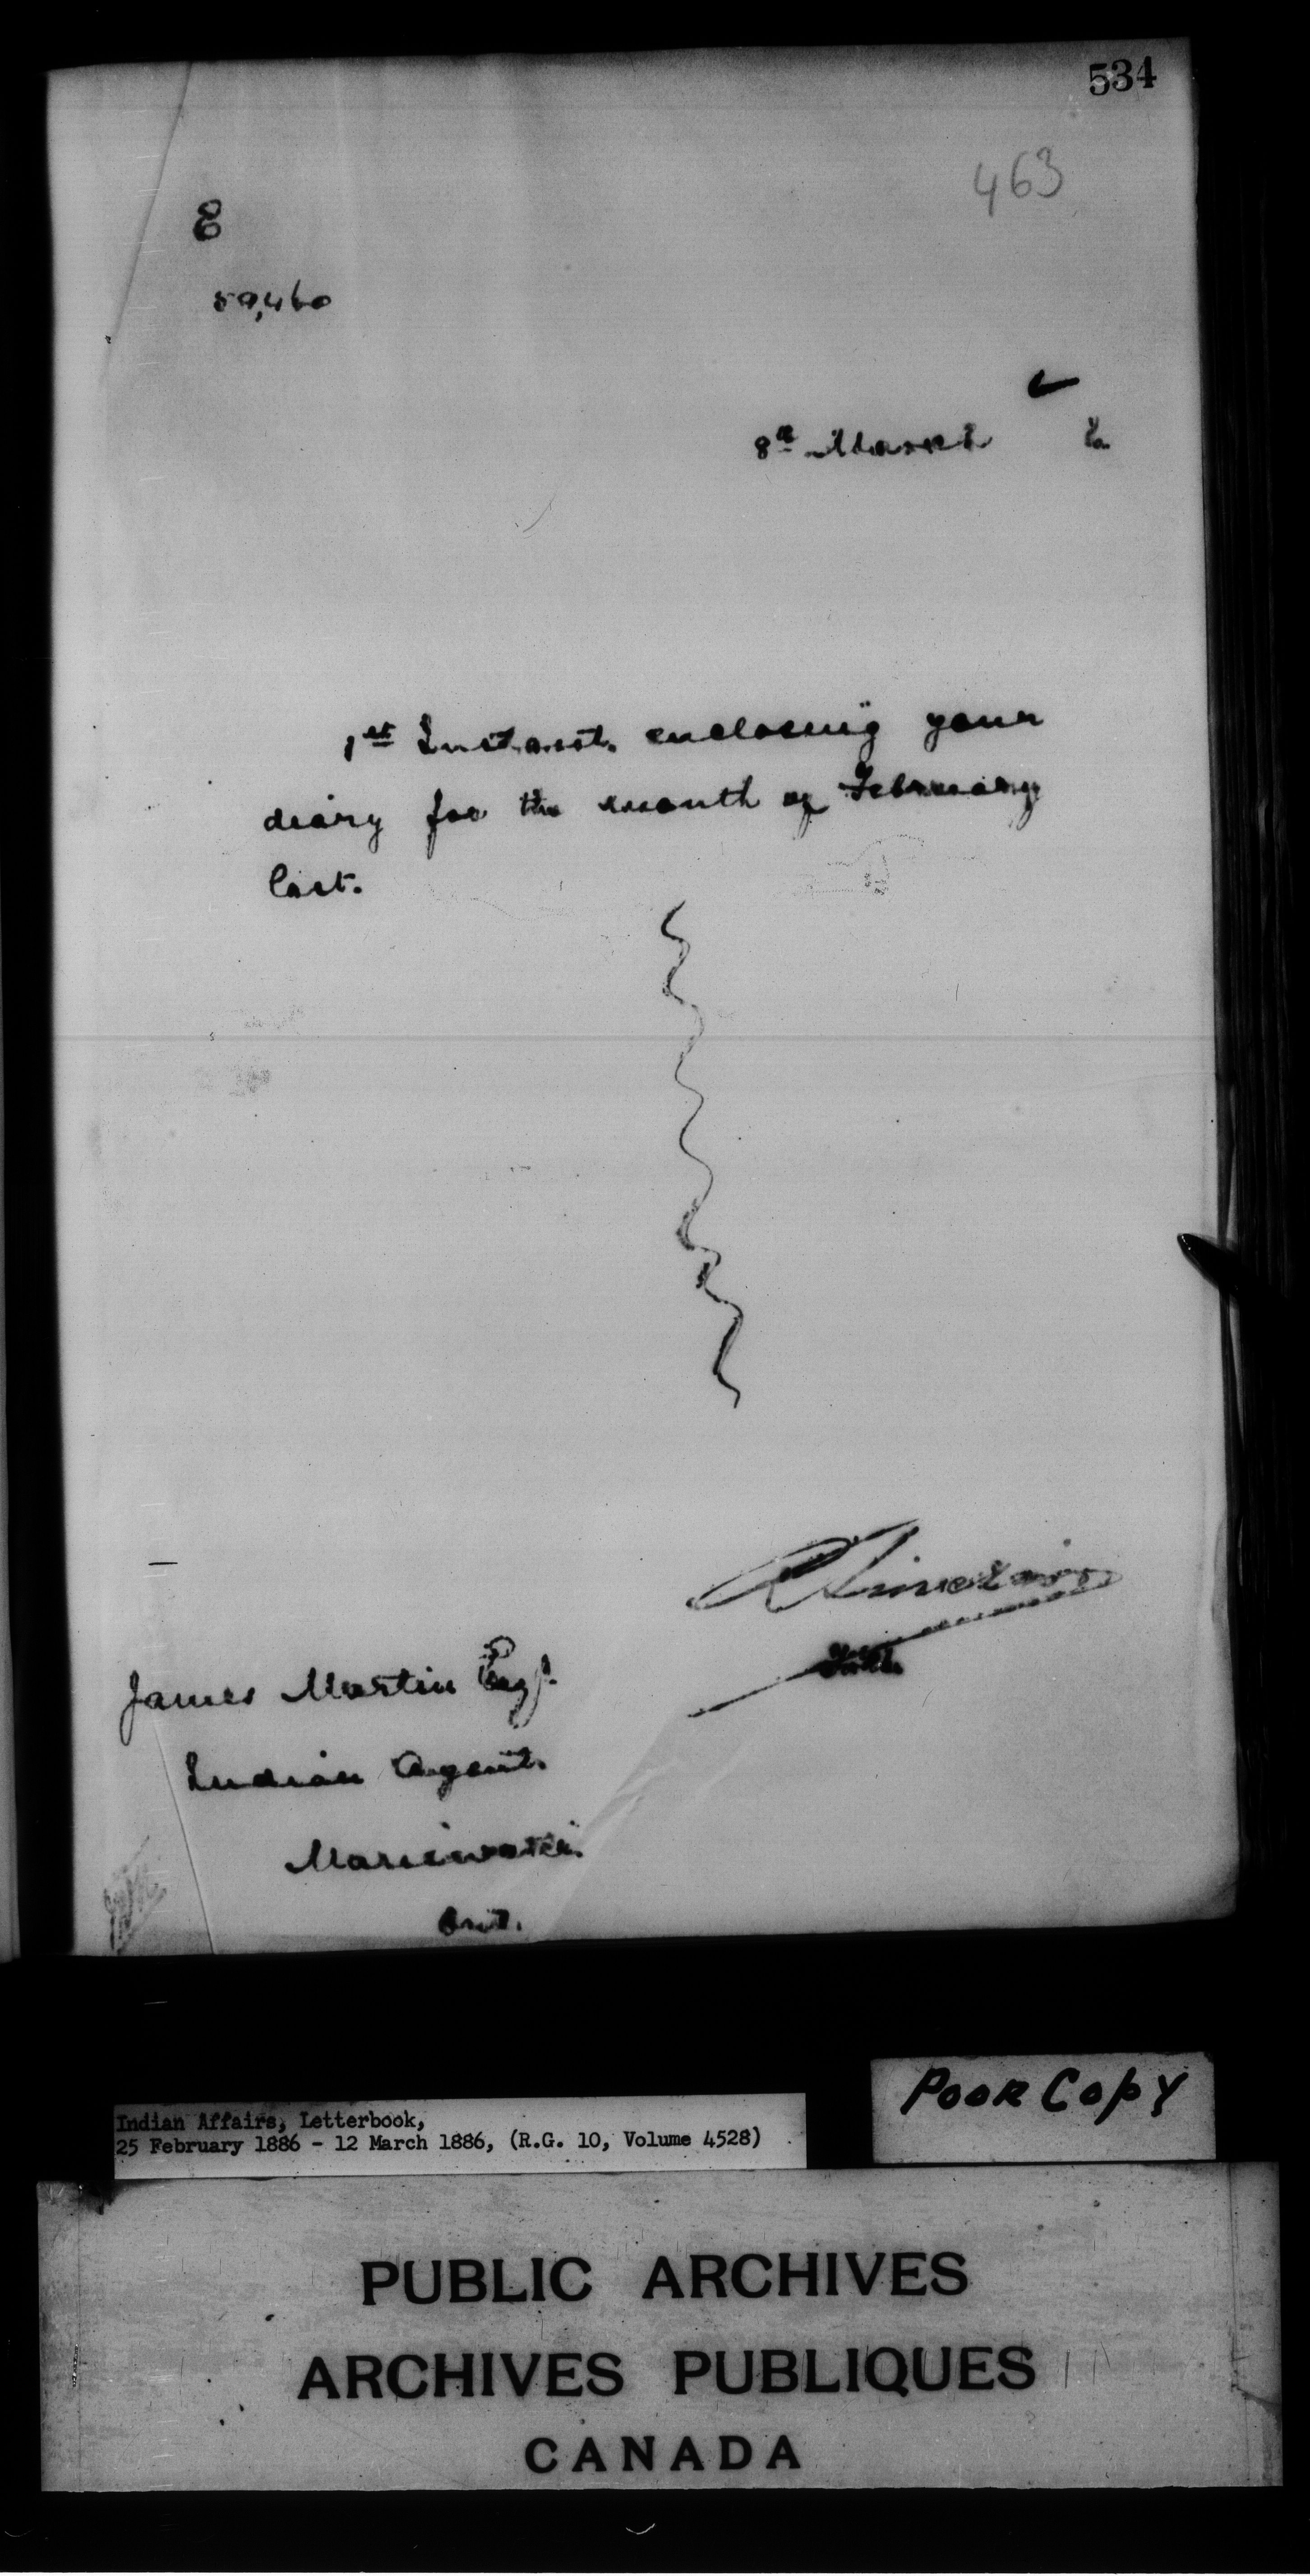 534
463
E
59,460
8th March 6
1st Instant. enclosing your
diary for the month of February
last.
R Sinclair
James Martin Esq.
Indian Agent.
Maniwaki
Ont.
Poor Copy
Indian Affairs, Letterbook,
25 February 1886 - 12 March 1886, (R.G. 10, Volume 4528)
PUBLIC ARCHIVES
ARCHIVES PUBLIQUES
CANADA